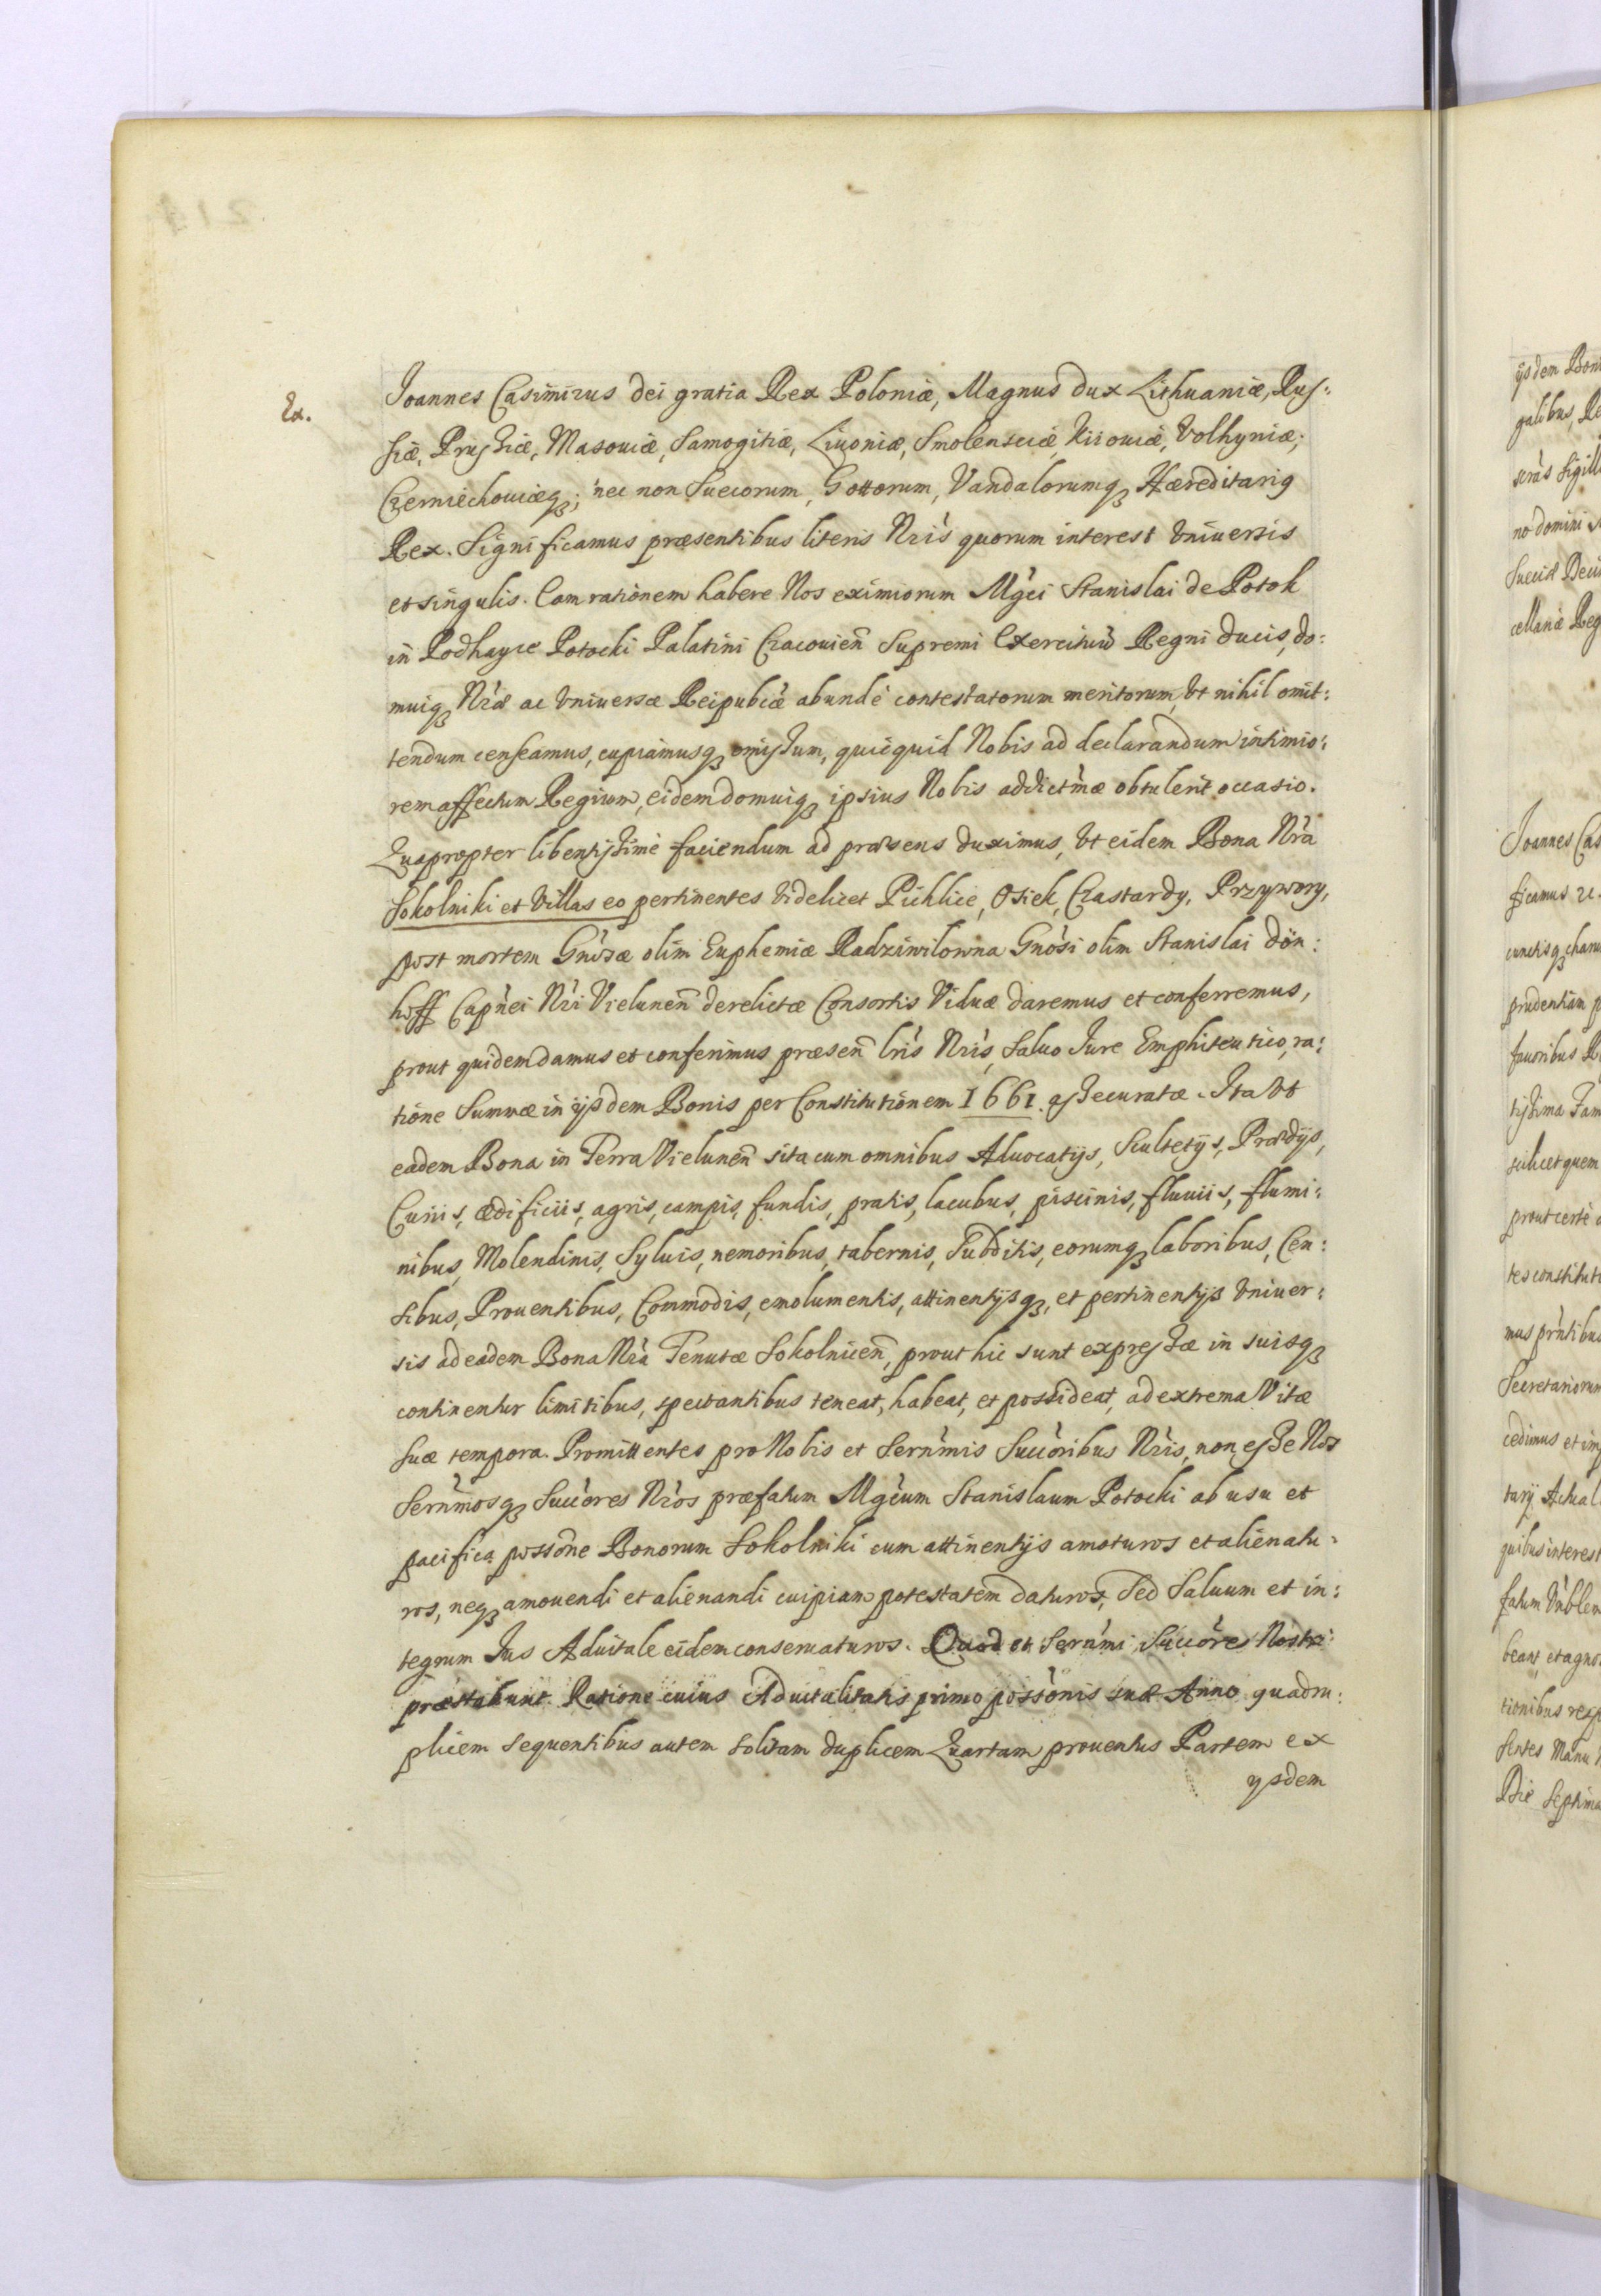 Ex.
Joannes Casimirus Dei gratia Rex Poloniæ, Magnus Dux Lithuaniæ, Rus:
siæ, Prussiæ, Masouiæ, Samogitiæ, Liuoniæ, Smolensciæ, Kiiouiæ, Volhyniæ,
Czerniechouiæq; nec non Suecorum, Gottorum, Vandalorumq Hæreditarig
Rex. Significamus præsentibus literis Nris quorum interest Vniuersis
et singulis. Eam rationem habere Nos eximiorum Mgci Stanislai de Potok
in Podhayce Potocki Palatini Cracouien Supremi Exercituu Regni Ducis, do:
muiq Nræ ac Vniuersæ Reipubcæ abundé contestatorum meritorum, Vt nihil omit:
tendum censeamus, cupiamusq omissum, quicquid Nobis ad declarandum intimio:
rem affectum Regium, eidem domuiq ipsius Nobis addictmæ obtulerit occasio.
Quapropter libentissimè faciendum ad præsens duximus, Vt eidem Bona Nra
Sokolniki et Villas eo pertinentes Videlicet Pichlice, Osiek, Czastardy, Przywory,
post mortem Gnosæ olim Euphemiæ Radziwilowna Gnosi olim Stanislai Dön:
hoff Capnei Nri Vielunen derelictæ Consortis Viduæ daremus et conferremus,
prout quidem damus et conferimus præsen lris Nris, Saluo Jure Emphiteutico, ra:
tione Summæ in ijsdem Bonis per Constitutionem 1661. assecuratæ. Ita Vt
eadem Bona in Terra Vielunen sita cum omnibus Aduocatijs, Scultetijs, Prædijs,
Curiis, ædificiis, agris, campis, fundis, pratis, lacubus, piscinis, fluuiis, flumi:
nibus, Molendinis, Syluis, nemoribus, tabernis, Subditis, eorumq laboribus, Cen:
sibus, Prouentibus, Commodis, emolumentis, attinentijsq, et pertinentijs Vniuer:
sis ad eadem Bona Nra Tenutæ Sokolnicen, prout hic sunt expressæ in suisq
continentur limitibus, spectantibus teneat, habeat, et possideat, ad extrema Vitæ
suæ tempora. Promittentes pro Nobis et Sernmis Succoribus Nris, non esse Nos
Sernmosq Succores Nros præfatum Mgcum Stanislaum Potocki ab usu et
pacifica possone Bonorum Sokolniki cum attinentijs amoturos et alienatu:
ros, neq amouendi et alienandi cuipiam potestatem daturos, Sed Saluum et in:
tegrum Jus Aduitale eidem conseruaturos. Quod et Sernmi Succores Nostri
præstabunt. Ratione cuius Aduitalitatis primo possonis suæ Anno quadru:
plicem sequentibus autem solitam duplicem Quartam prouentus Partem ex
ysdem